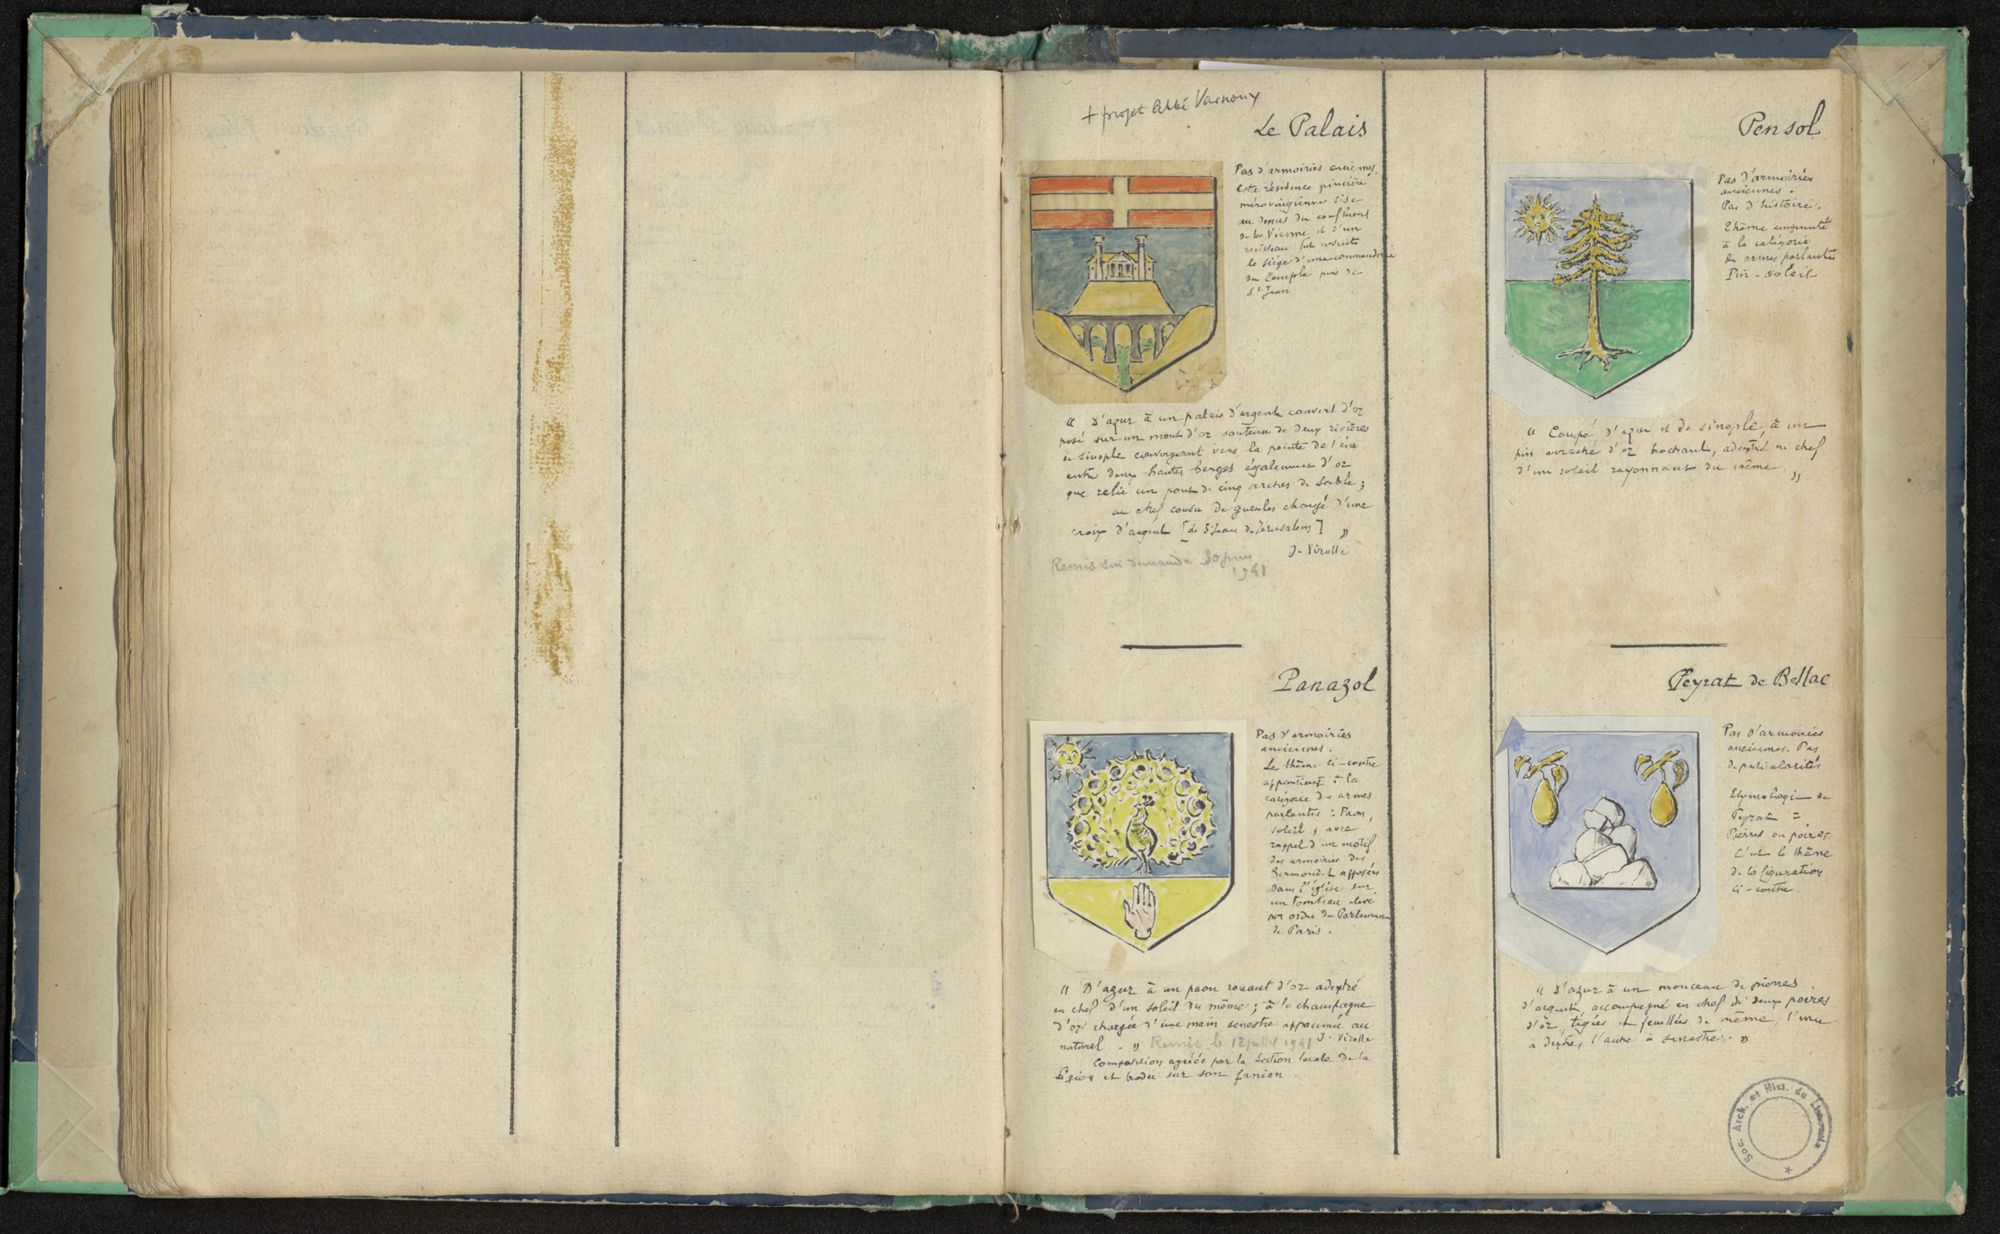 + projet Abbé Varnoux
Le Palais
Pas d'armoiries anciennes.
Cette résidence princière
mérovingienne sise
au dessus du confluent
de la Vienne et d'un
ruisseau fut ensuite
le siège d'une commanderie
du Temple puis de
St Jean
" D'azur à un palais d'argent couvert d'or
posé sur un mont d'or soutenu de deux rivières
de sinople convergeant vers la pointe de l'écu
entre deux hautes berges également d'or
que relie un pont de cinq arches de sable ;
au chef cousu de gueules chargé d'une
croix d'argent [de St Jean de Jérusalem] "
J. Virolle
Remis sur demande 30 juin
1941
Panazol
Pas d'armoiries
anciennes.
Le thème ci-contre
appartient à la
catégorie des armes
parlantes : Paon,
soleil ; avec
rappel d'un motif
des armoiries des
Bermondet apposées
dans l'église sur
un tombeau élevé
par ordre du Parlement
de Paris.
" D'azur à un paon rouant d'or adextré
en chef d'un soleil du même ; à la champagne
d'or chargée d'une main senestre appaumée au
naturel. " Remis le 12 juillet 1941 J. Virolle
Composition agréée par la section locale de la
Légion et brodée sur son fanion.
Pensol
Pas d'armoiries
anciennes.
Pas d'histoire.
Thème emprunté
à la catégorie
des armes parlantes
Pin-soleil
" Coupé d'azur et de sinople, à un
pin arraché d'or brochant, adextré en chef
d'un soleil rayonnant du même. "
Peyrat de Bellac
Pas d'armoiries
anciennes. Pas
de particularités
Etymologie de
Peyrat =
Pierres ou poires
C'est le thème
de la figuration
ci-contre.
" D'azur à un monceau de pierres
d'argent accompagné en chef de deux poires
d'or, tigées et feuillées de même, l'une
à dextre, l'autre à senestre. "
Soc. Arch. et Hist. du Limousin